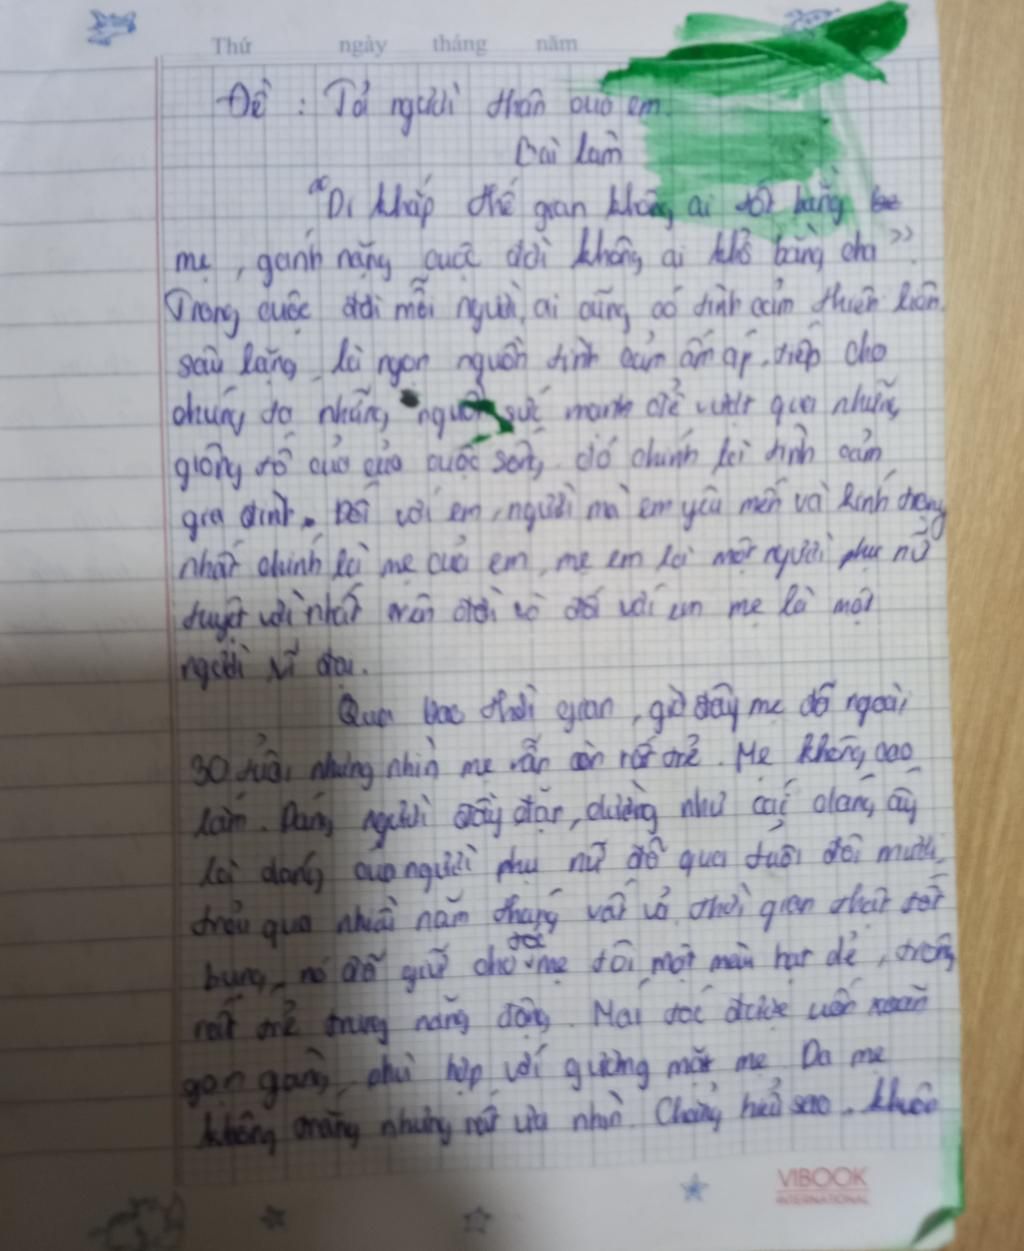 Thứ ngày tháng năm
Đề : Tả người thân của em.
Bài làm
"Đi khắp thế gian không ai tốt bằng
mẹ, gánh nặng cuộc đời không ai khổ bằng cha".
Trong cuộc đời mỗi người, ai cũng có tình cảm thiên liên
sâu lặng, là ngọn nguồn tình cảm ấm áp, tiếp cho
chúng ta những nguồn sức mạnh để vượt qua những
giông tố của của cuộc sống, đó chính là tình cảm
gia đình. Đối với em, người mà em yêu mến và kính trọng
nhất chính là mẹ của em, mẹ em là một người phụ nữ
tuyệt vời nhất trên đời và đối với em mẹ là một
người vĩ đại.
Qua bao thời gian, giờ đây mẹ đã ngoài
30 tuổi nhưng nhìn mẹ vẫn còn rất trẻ. Mẹ không cao
lắm. Dáng người đầy đặn, dường như cái dáng ấy
là dáng của người phụ nữ đã qua tuổi đôi mươi,
trải qua nhiều năm tháng vất vả, thời gian thật tốt
bụng, nó đã giữ cho mẹ tôi một màu hạt dẻ, trông
tóc
rất trẻ trung năng động. Mái tóc được uốn xoăn
gọn gàng, phù hợp với gương mặt mẹ. Da mẹ
không trắng nhưng rất ưa nhìn. Chẳng hiểu sao,
VIBOOK
INTERNATIONAL